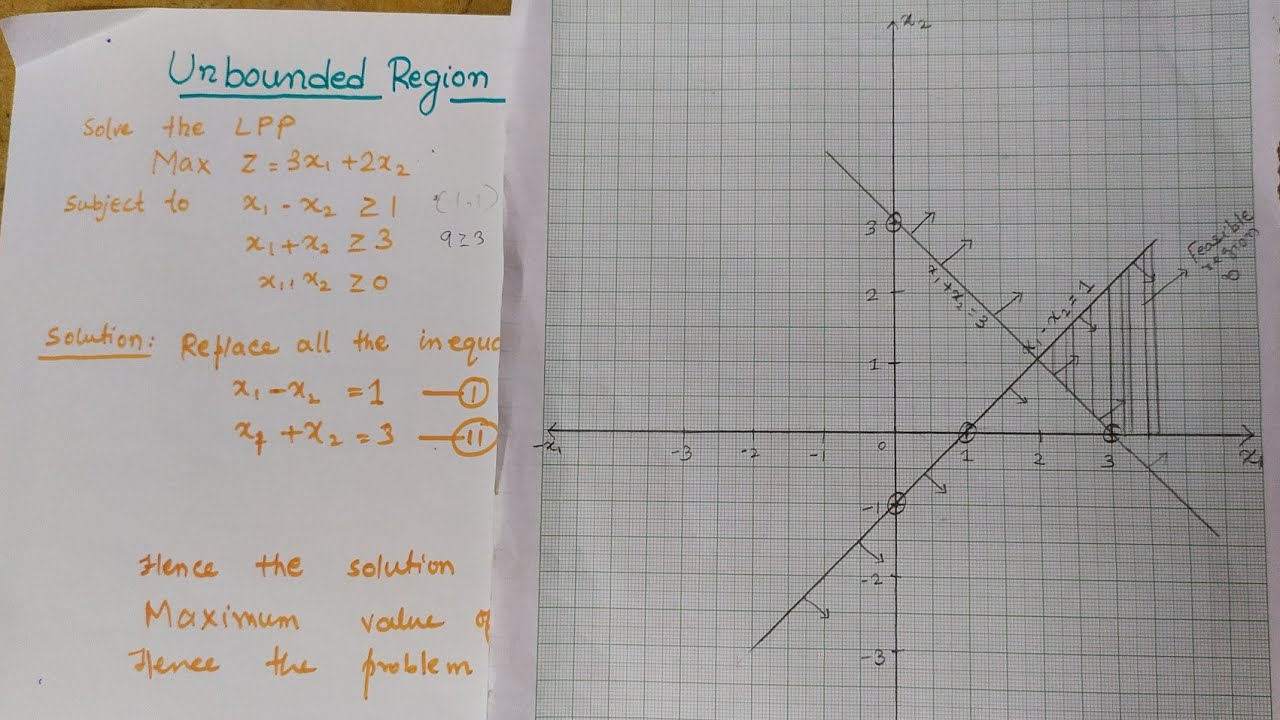 Unbounded Region
Solve the LPP
Max Z = 3x₁ + 2x₂
Subject to x₁ - x₂ ≥ 1 (1,1)
x₁ + x₂ ≥ 3 9≥3
x₁, x₂ ≥ 0
Solution: Replace all the inequa
x₁ - x₂ = 1 — I
x₁ + x₂ = 3 — II
Hence the solution
Maximum value of
Hence the problem
x₂
3
2
1
0
-1
-2
-3
-x₁
-3 -2 -1 1 2 3
x₁
x₁ + x₂ = 3
x₁ - x₂ = 1
Feasible
region